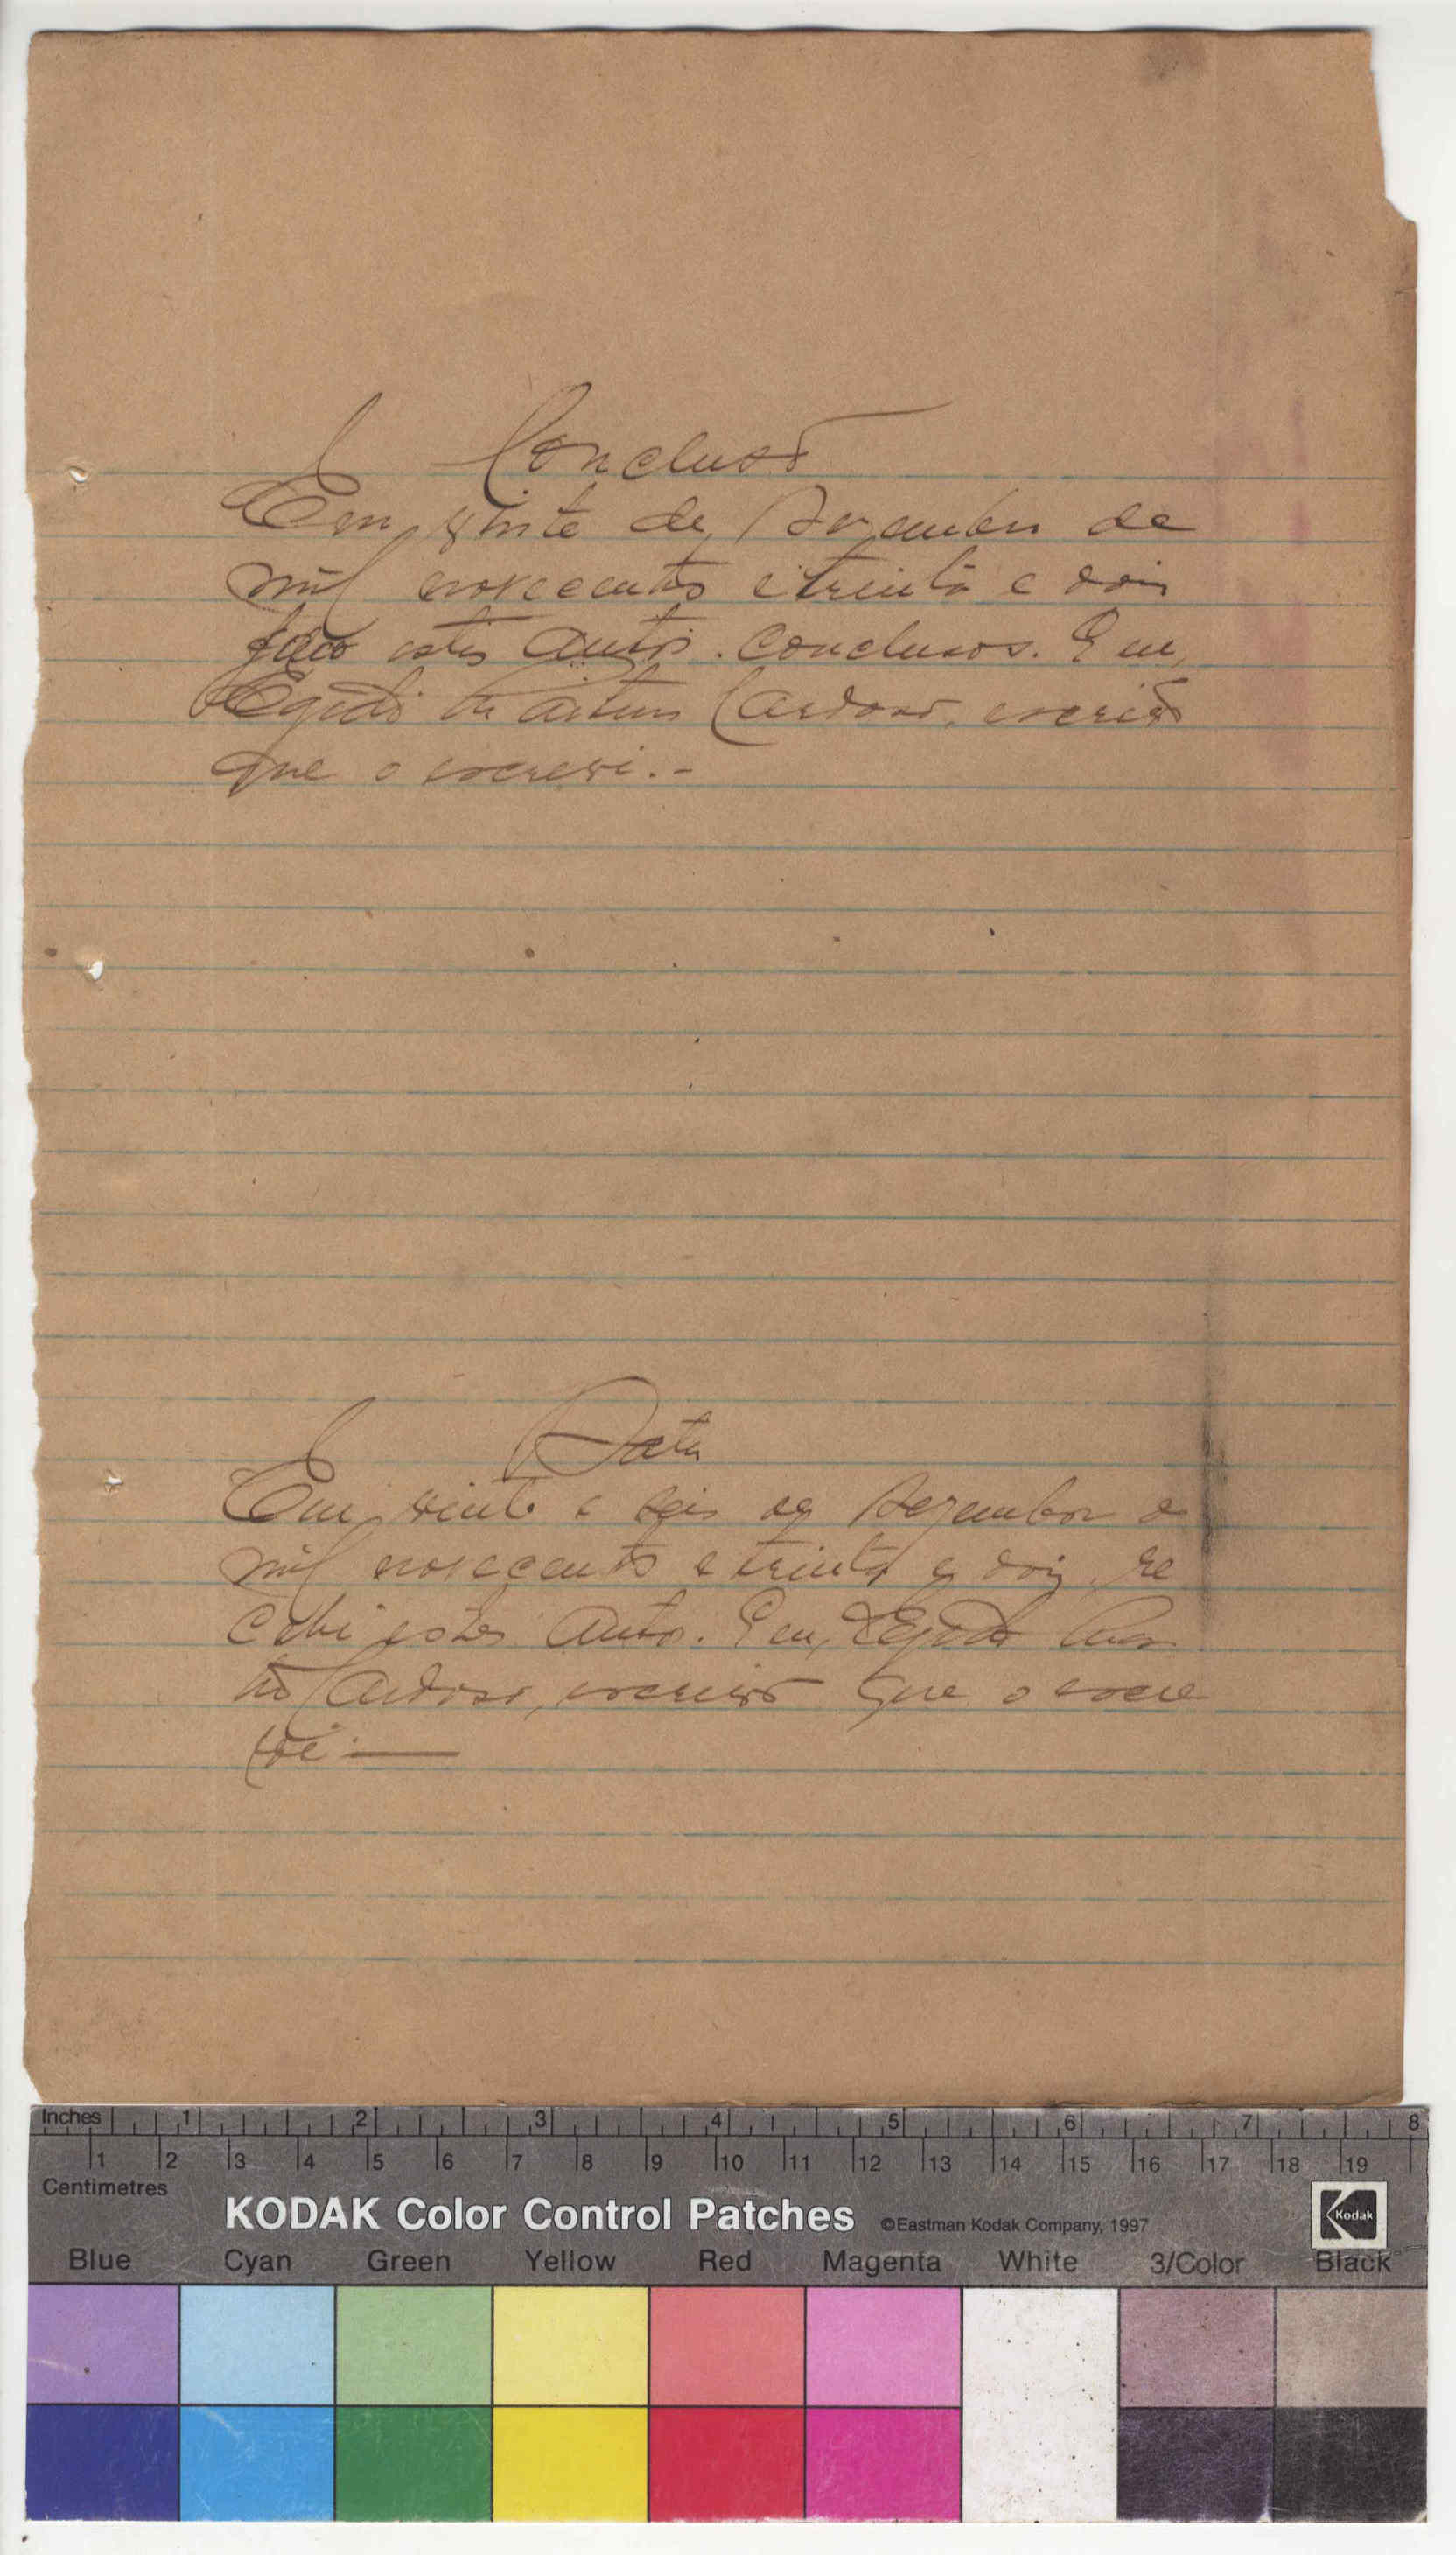 Conclusão
Em vinte de Dezembro de
mil novecentos e trinta e dois
faço estes autos conclusos. Eu,
Egidio Cardoso, escrivão
que o escrevi.-
Data
Em vinte e seis de Dezembro de
mil novecentos e trinta e dois re
cebi estes autos. Eu, Egidio
Cardoso, escrivão que o escre
vi.
Inches 1 2 3 4 5 6 7 8
1 2 3 4 5 6 7 8 9 10 11 12 13 14 15 16 17 18 19
Centimetres
KODAK Color Control Patches ©Eastman Kodak Company, 1997 Kodak
Blue Cyan Green Yellow Red Magenta White 3/Color Black